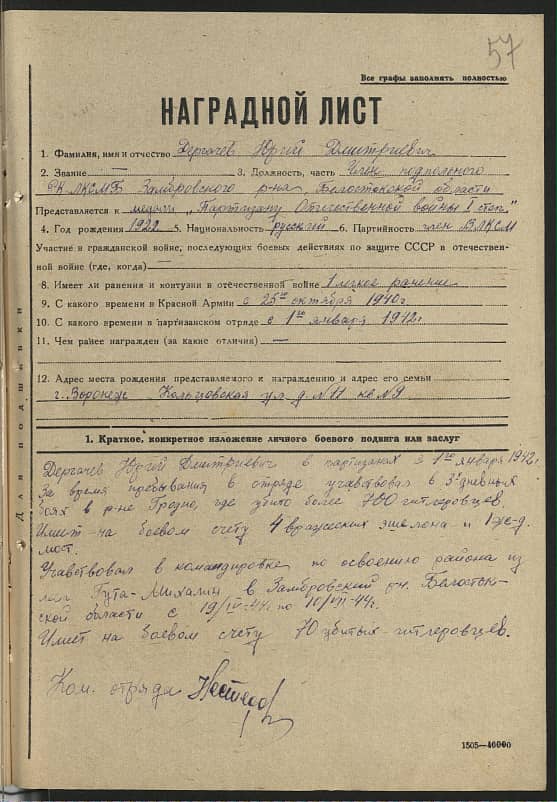 57
Все графы заполнять полностью
НАГРАДНОЙ ЛИСТ
1. Фамилия, имя и отчество Дергачев Юрий Дмитриевич
2. Звание — 3. Должность, часть Член подпольного
РК ЛКСМБ Замбровского р-на Белостокской области
Представляется к медали „Партизану Отечественной войны I степ."
4. Год рождения 1922 5. Национальность русский 6. Партийность член ВЛКСМ
Участие в гражданской войне, последующих боевых действиях по защите СССР в отечествен-
ной войне (где, когда) —
8. Имеет ли ранения и контузии в отечественной войне 1 легкое ранение
9. С какого времени в Красной Армии с 25го октября 1940г.
10. С какого времени в партизанском отряде с 1го января 1942г
11. Чем ранее награжден (за какие отличия) —
12. Адрес места рождения представляемого к награждению и адрес его семьи
г. Воронеж Кольцовская ул. д. №11 кв №9
1. Краткое, конкретное изложение личного боевого подвига или заслуг
Дергачев Юрий Дмитриевич в партизанах с 1го января 1942г.
За время пребывания в отряде учавствовал в 3х дневных
боях в р-не Гродно, где убито более 700 гитлеровцев.
Имеет на боевом счету 4 вражеских эшелона и 1 ж-д.
мост.
Учавствовал в командировке по освоению района из
Гута-Михалин в Замбровский Белосток-
ской области с 19/IV-44г по 10/VII-44г.
Имеет на боевом счету 70 убитых гитлеровцев.
Ком. отряда
1505—40000
Для подшивки